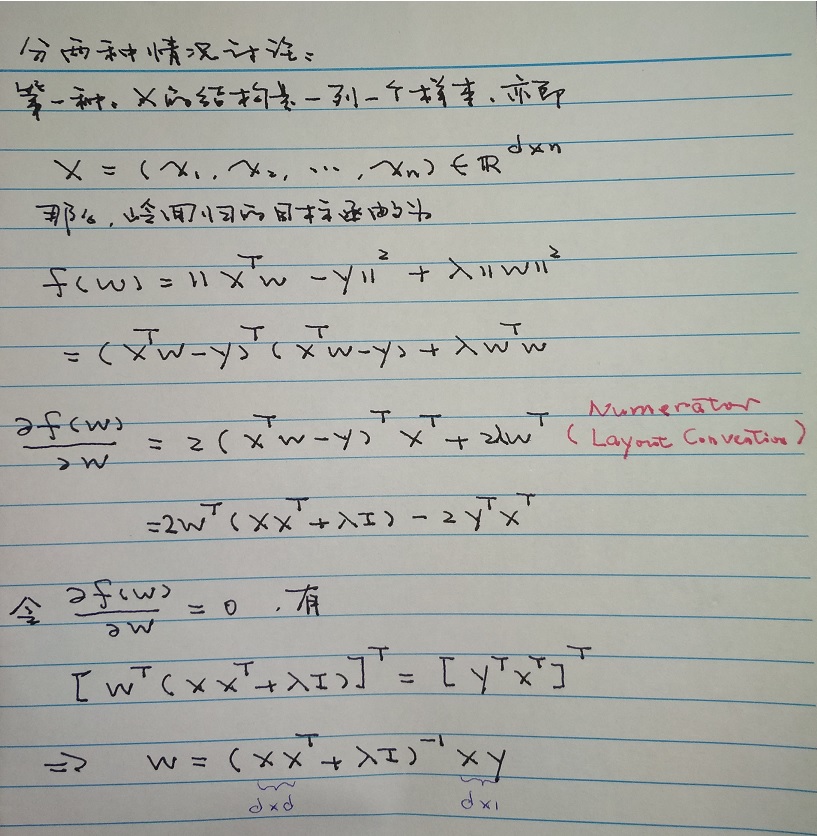 分两种情况讨论:
第一种. X的结构是一列一个样本. 亦即
X = (x₁, x₂, ..., xₙ) ∈ ℝ^{d×n}
那么, 岭回归的目标函数为
f(w) = ||X^T w - y||² + λ||w||²
= (X^T w - y)^T (X^T w - y) + λ w^T w
∂f(w)/∂w = 2(X^T w - y)^T X^T + 2λw^T (Numerator Layout Convention)
= 2w^T (XX^T + λI) - 2y^T X^T
令 ∂f(w)/∂w = 0 , 有
[w^T (XX^T + λI)]^T = [y^T X^T]^T
⇒ w = (XX^T + λI)^{-1} Xy
d×d d×1